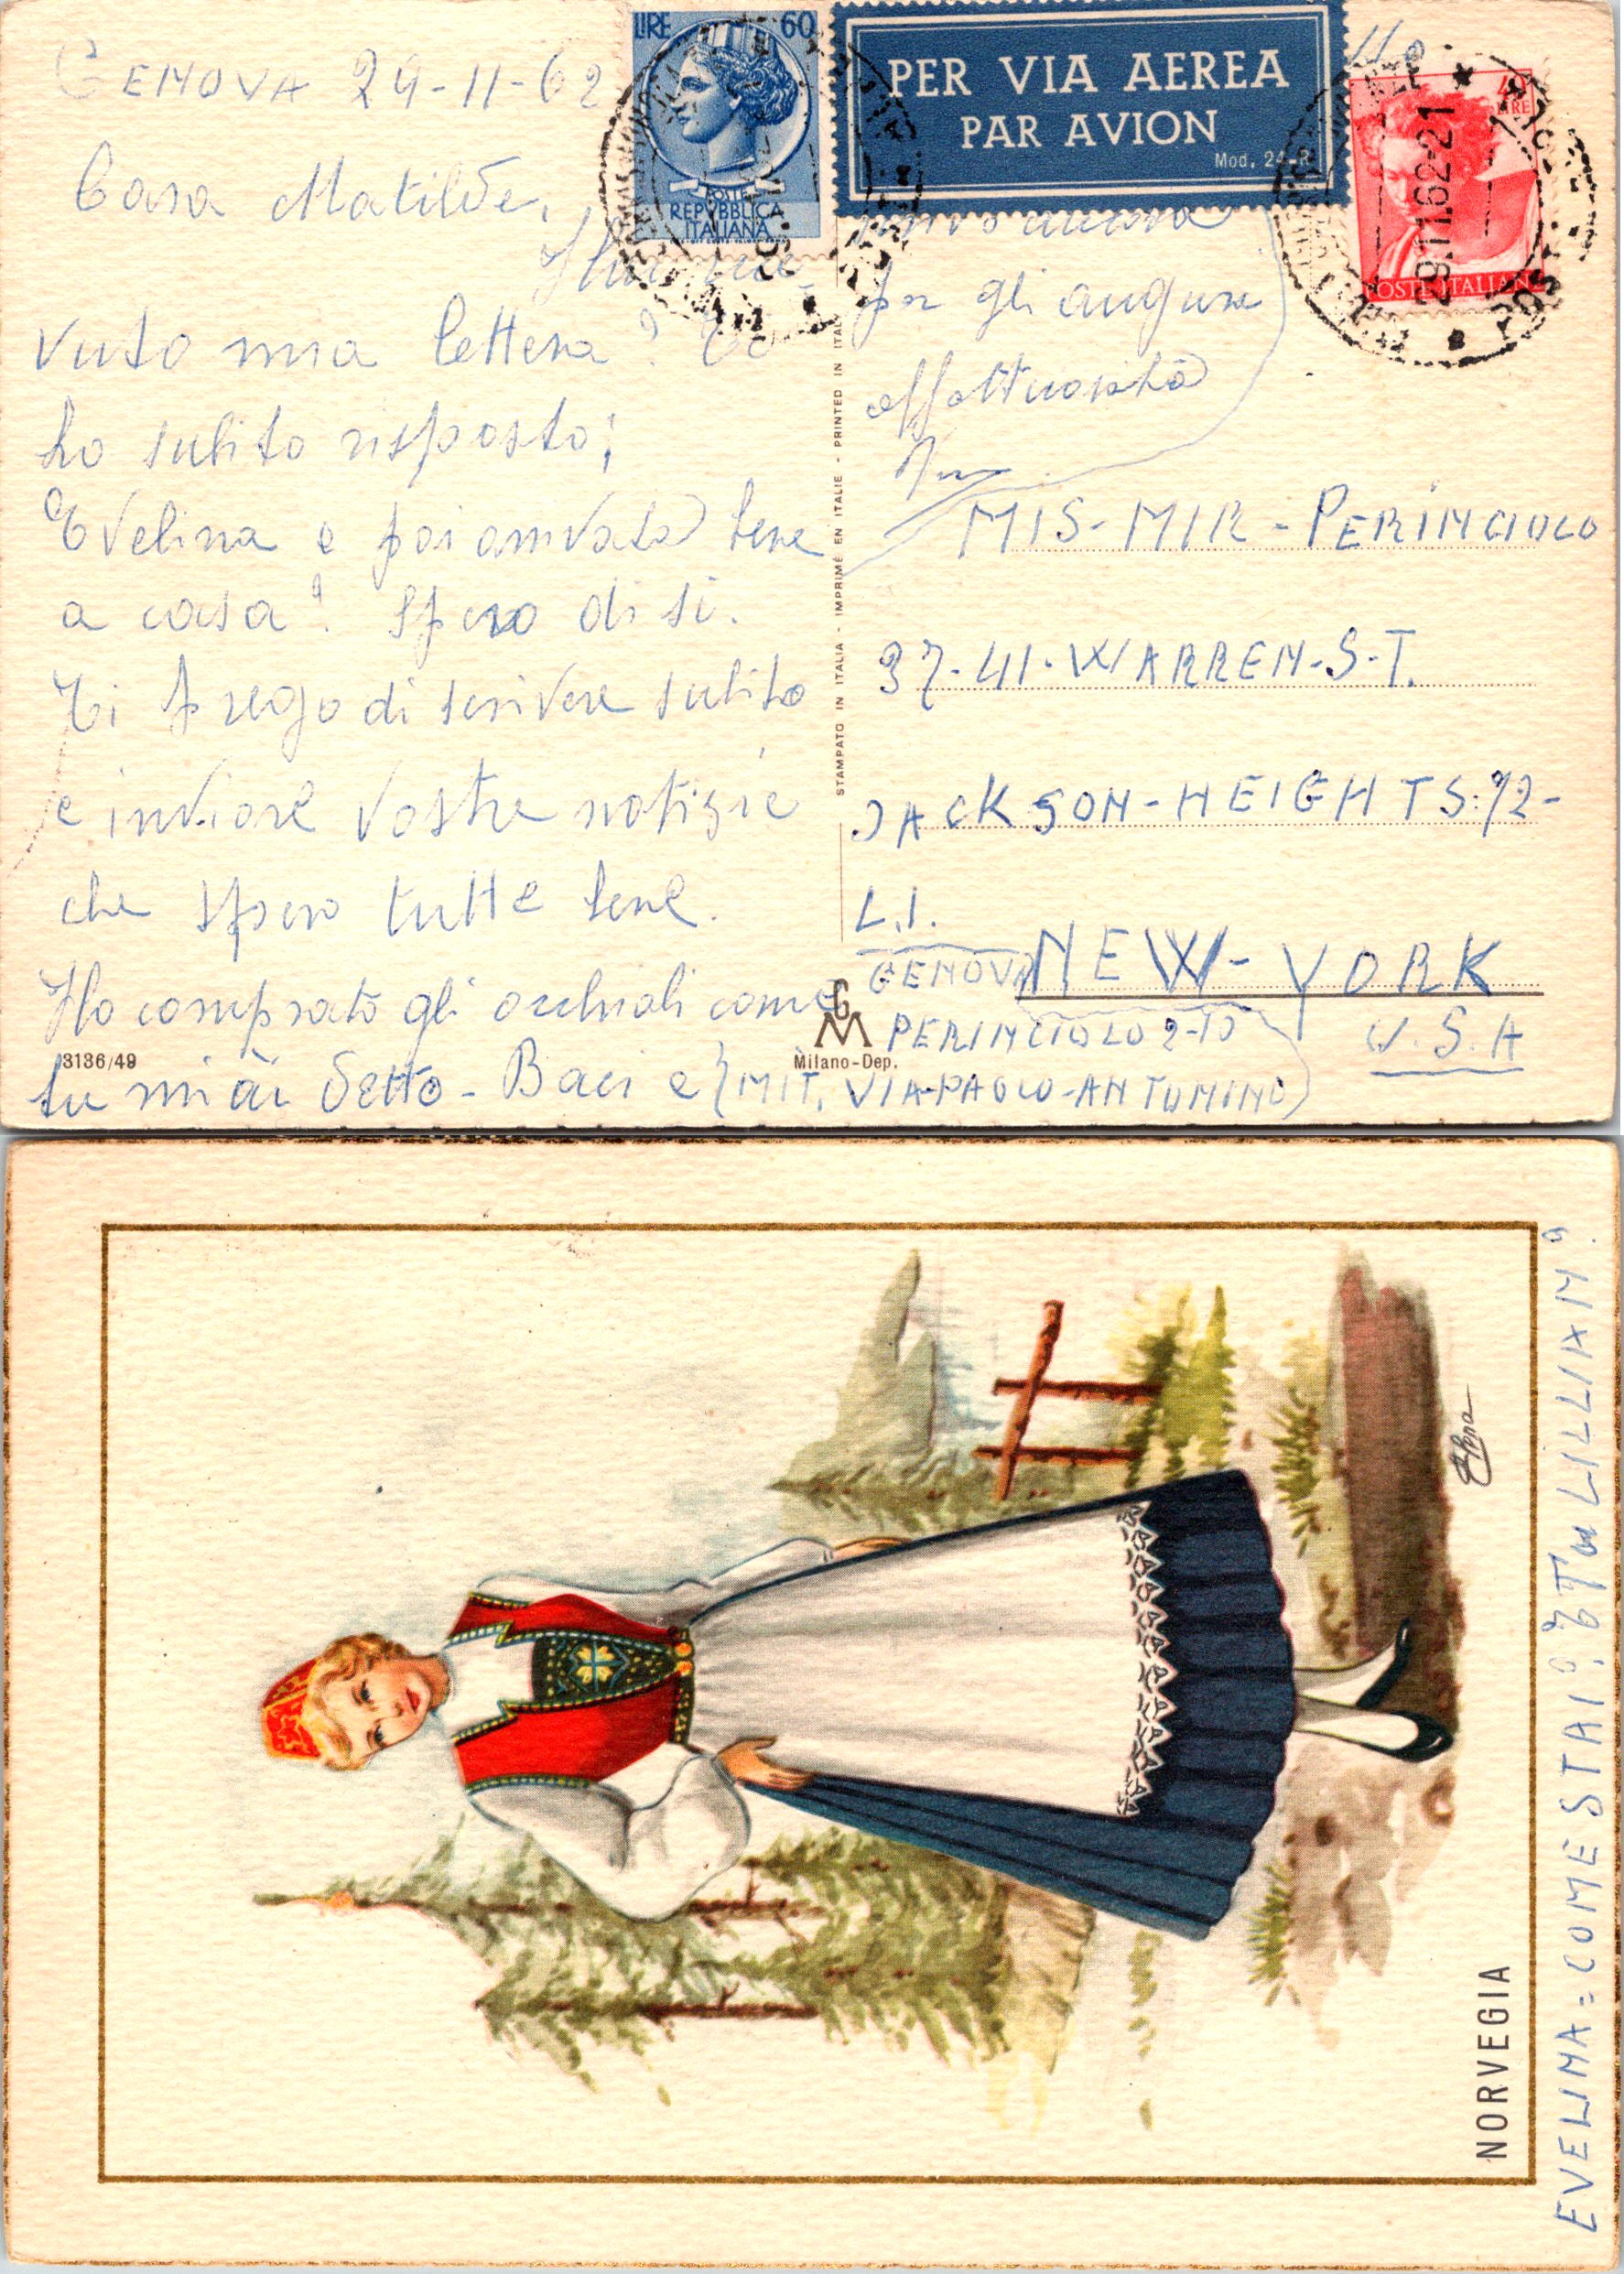 GENOVA 29-11-62
Cara Matilde,
vuto mia lettera? Io
ho subito risposto;
Evelina e poi arrivata bene
a casa? Spero di si.
Ti prego di scrivere subito
e inviare vostre notizie
che spero tutte bene.
Ho comprato gli occhiali come
tu mi ài detto - Baci e
LIRE 60
POSTE
REPVBBLICA
ITALIANA
PER VIA AEREA
PAR AVION
Mod. 24-R
40
LIRE
POSTE ITALIANE
29.11.62-21
ancora
per gli auguri
affettuosità
MIS-MIR-PERINCIOLO
37-41-WARREN-S-T.
JACKSON-HEIGHTS:72-
L.I.
NEW-YORK
U.S.A
GENOVA
PERINCIOLO 2-10
(MIT. VIA-PAOLO-ANTONINO)
STAMPATO IN ITALIA - IMPRIMÉ EN ITALIE - PRINTED IN ITALY
GM
Milano-Dep.
3136/49
NORVEGIA
Elena
EVELINA = COME STAI? E Tu LILLIAN?